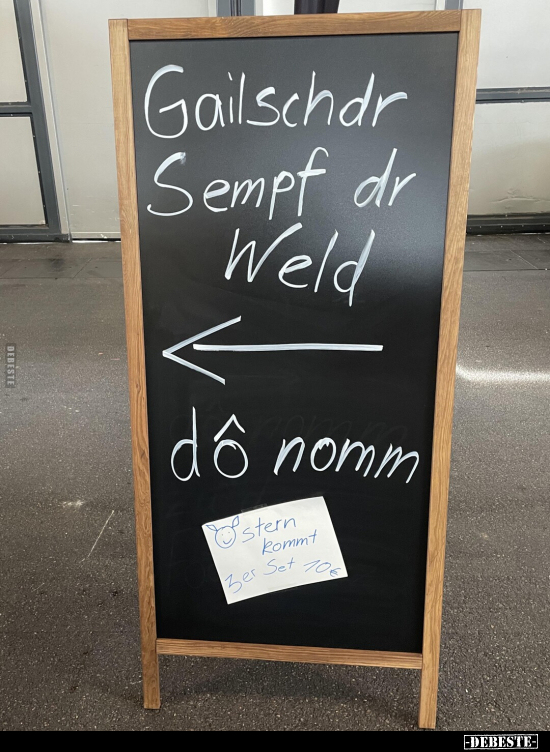 Gailschdr
Sempf dr
Weld
dô nomm
Ostern
kommt
3er Set 10€
DEBESTE
-DEBESTE-